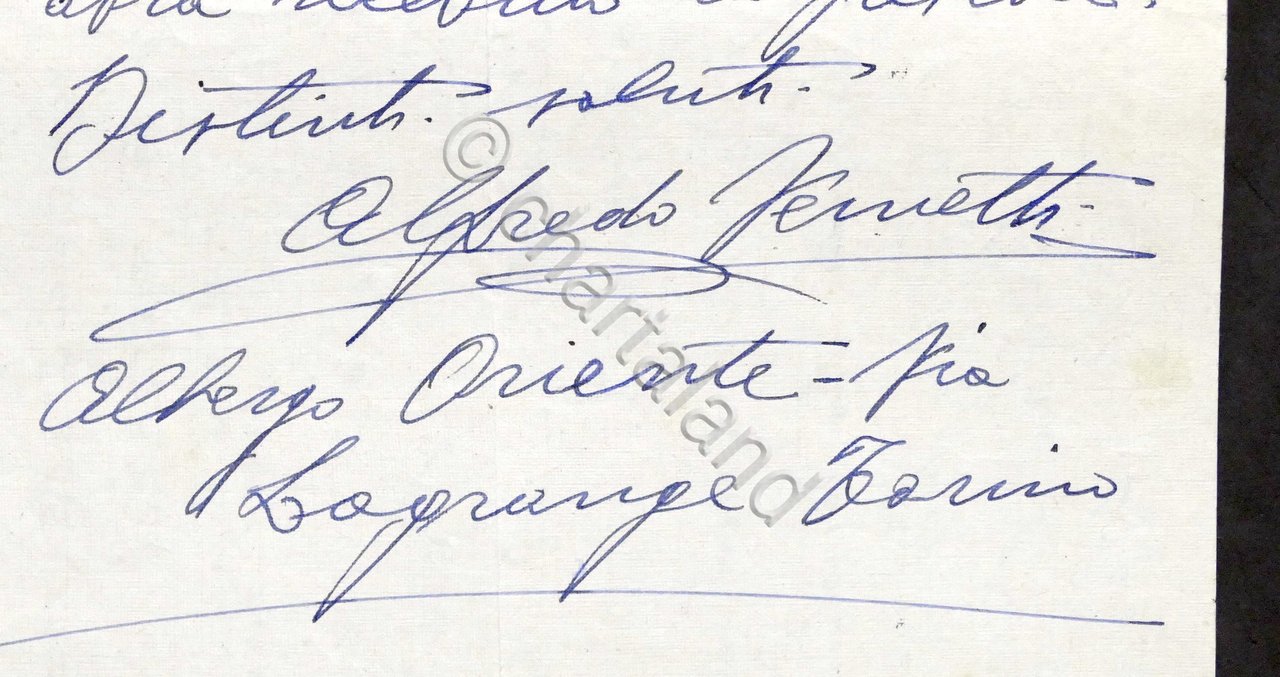 Distinti saluti.
Alfredo Vernetti
Albergo Oriente - Via
Lagrange Torino
© chartaland